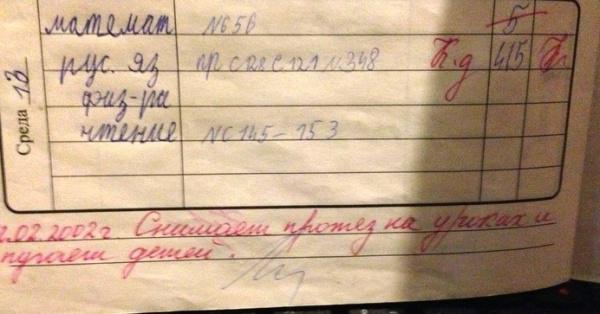 Среда 13
математ №65в 5
рус. яз К.д 4/5
физ-ра
чтение №С 145-153
.02.2002г Снимает протез на уроках и
пугает детей.